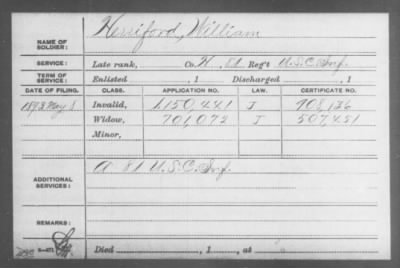 NAME OF SOLDIER: Herriford, William
SERVICE: Late rank, Co. H, 81 Reg't U.S.C. Inf.
TERM OF SERVICE: Enlisted , 1 Discharged , 1
DATE OF FILING. CLASS. APPLICATION NO. LAW. CERTIFICATE NO.
1893 May 8 Invalid, 1,150,441 J 908,136
Widow, 701,072 J 507,421
Minor,
ADDITIONAL SERVICES: A 81 U.S.C. Inf.
REMARKS:
Died , 1 , at